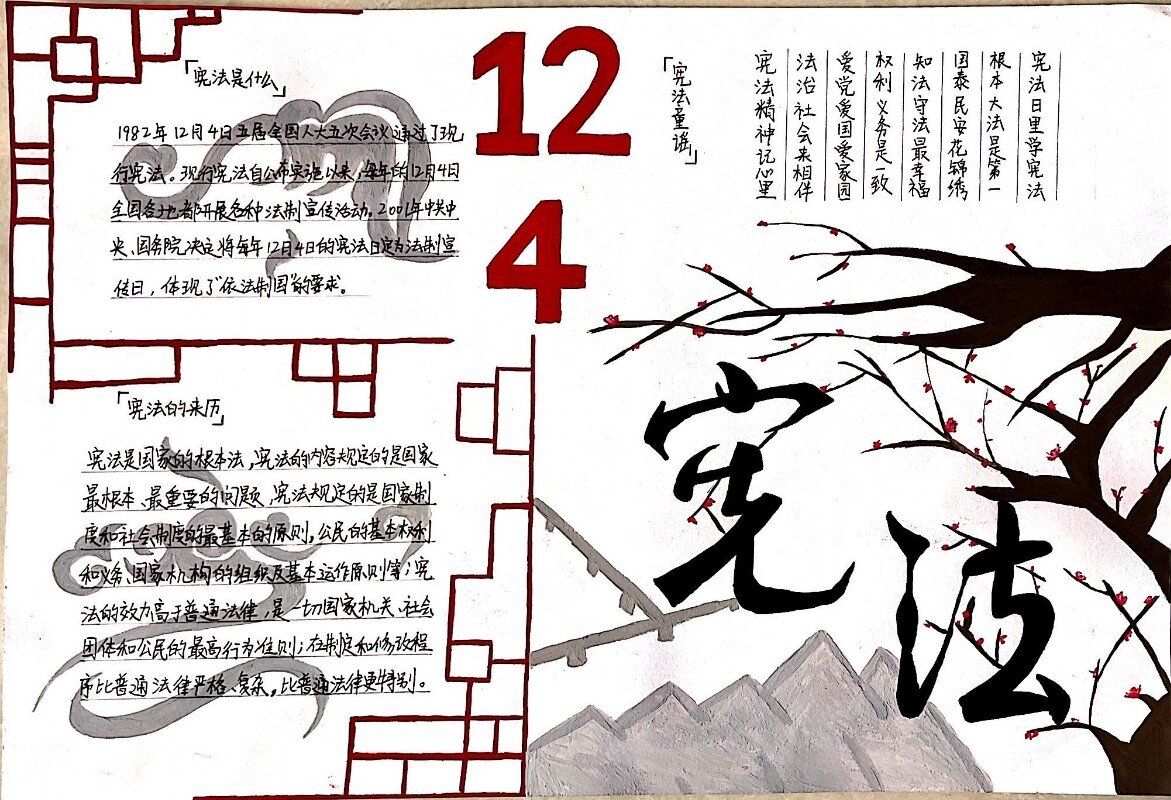 「宪法是什么」
1982年12月4日五届全国人大五次会议通过了现
行宪法。现行宪法自公布实施以来,每年的12月4日
全国各地都开展各种法制宣传活动。2001年中共中
央、国务院决定将每年12月4日的宪法日定为法制宣
传日，体现了“依法制国”的要求。
「宪法的来历」
宪法是国家的根本法,宪法的内容规定的是国家
最根本、最重要的问题、宪法规定的是国家制
度和社会制度的最基本的原则,公民的基本权利
和义务、国家机构的组织及基本运作原则等;宪
法的效力高于普通法律,是一切国家机关、社会
团体和公民的最高行为准则;在制定和修改程
序比普通法律严格、复杂,比普通法律更特别。
12
4
「宪法童谣」
宪法日里学宪法
根本大法是第一
国泰民安花锦绣
知法守法最幸福
权利义务是一致
爱党爱国爱家园
法治社会来相伴
宪法精神记心里
宪法